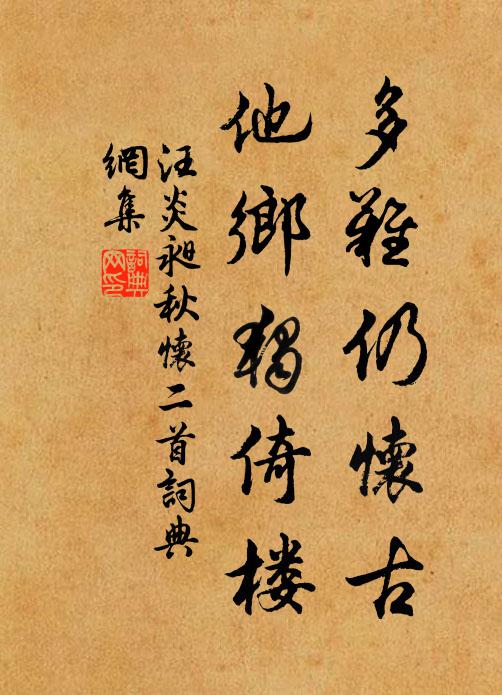 多難仍懷古
他鄉獨倚楼
汪炎昶秋懷二首詞典
網集
詞典
网印